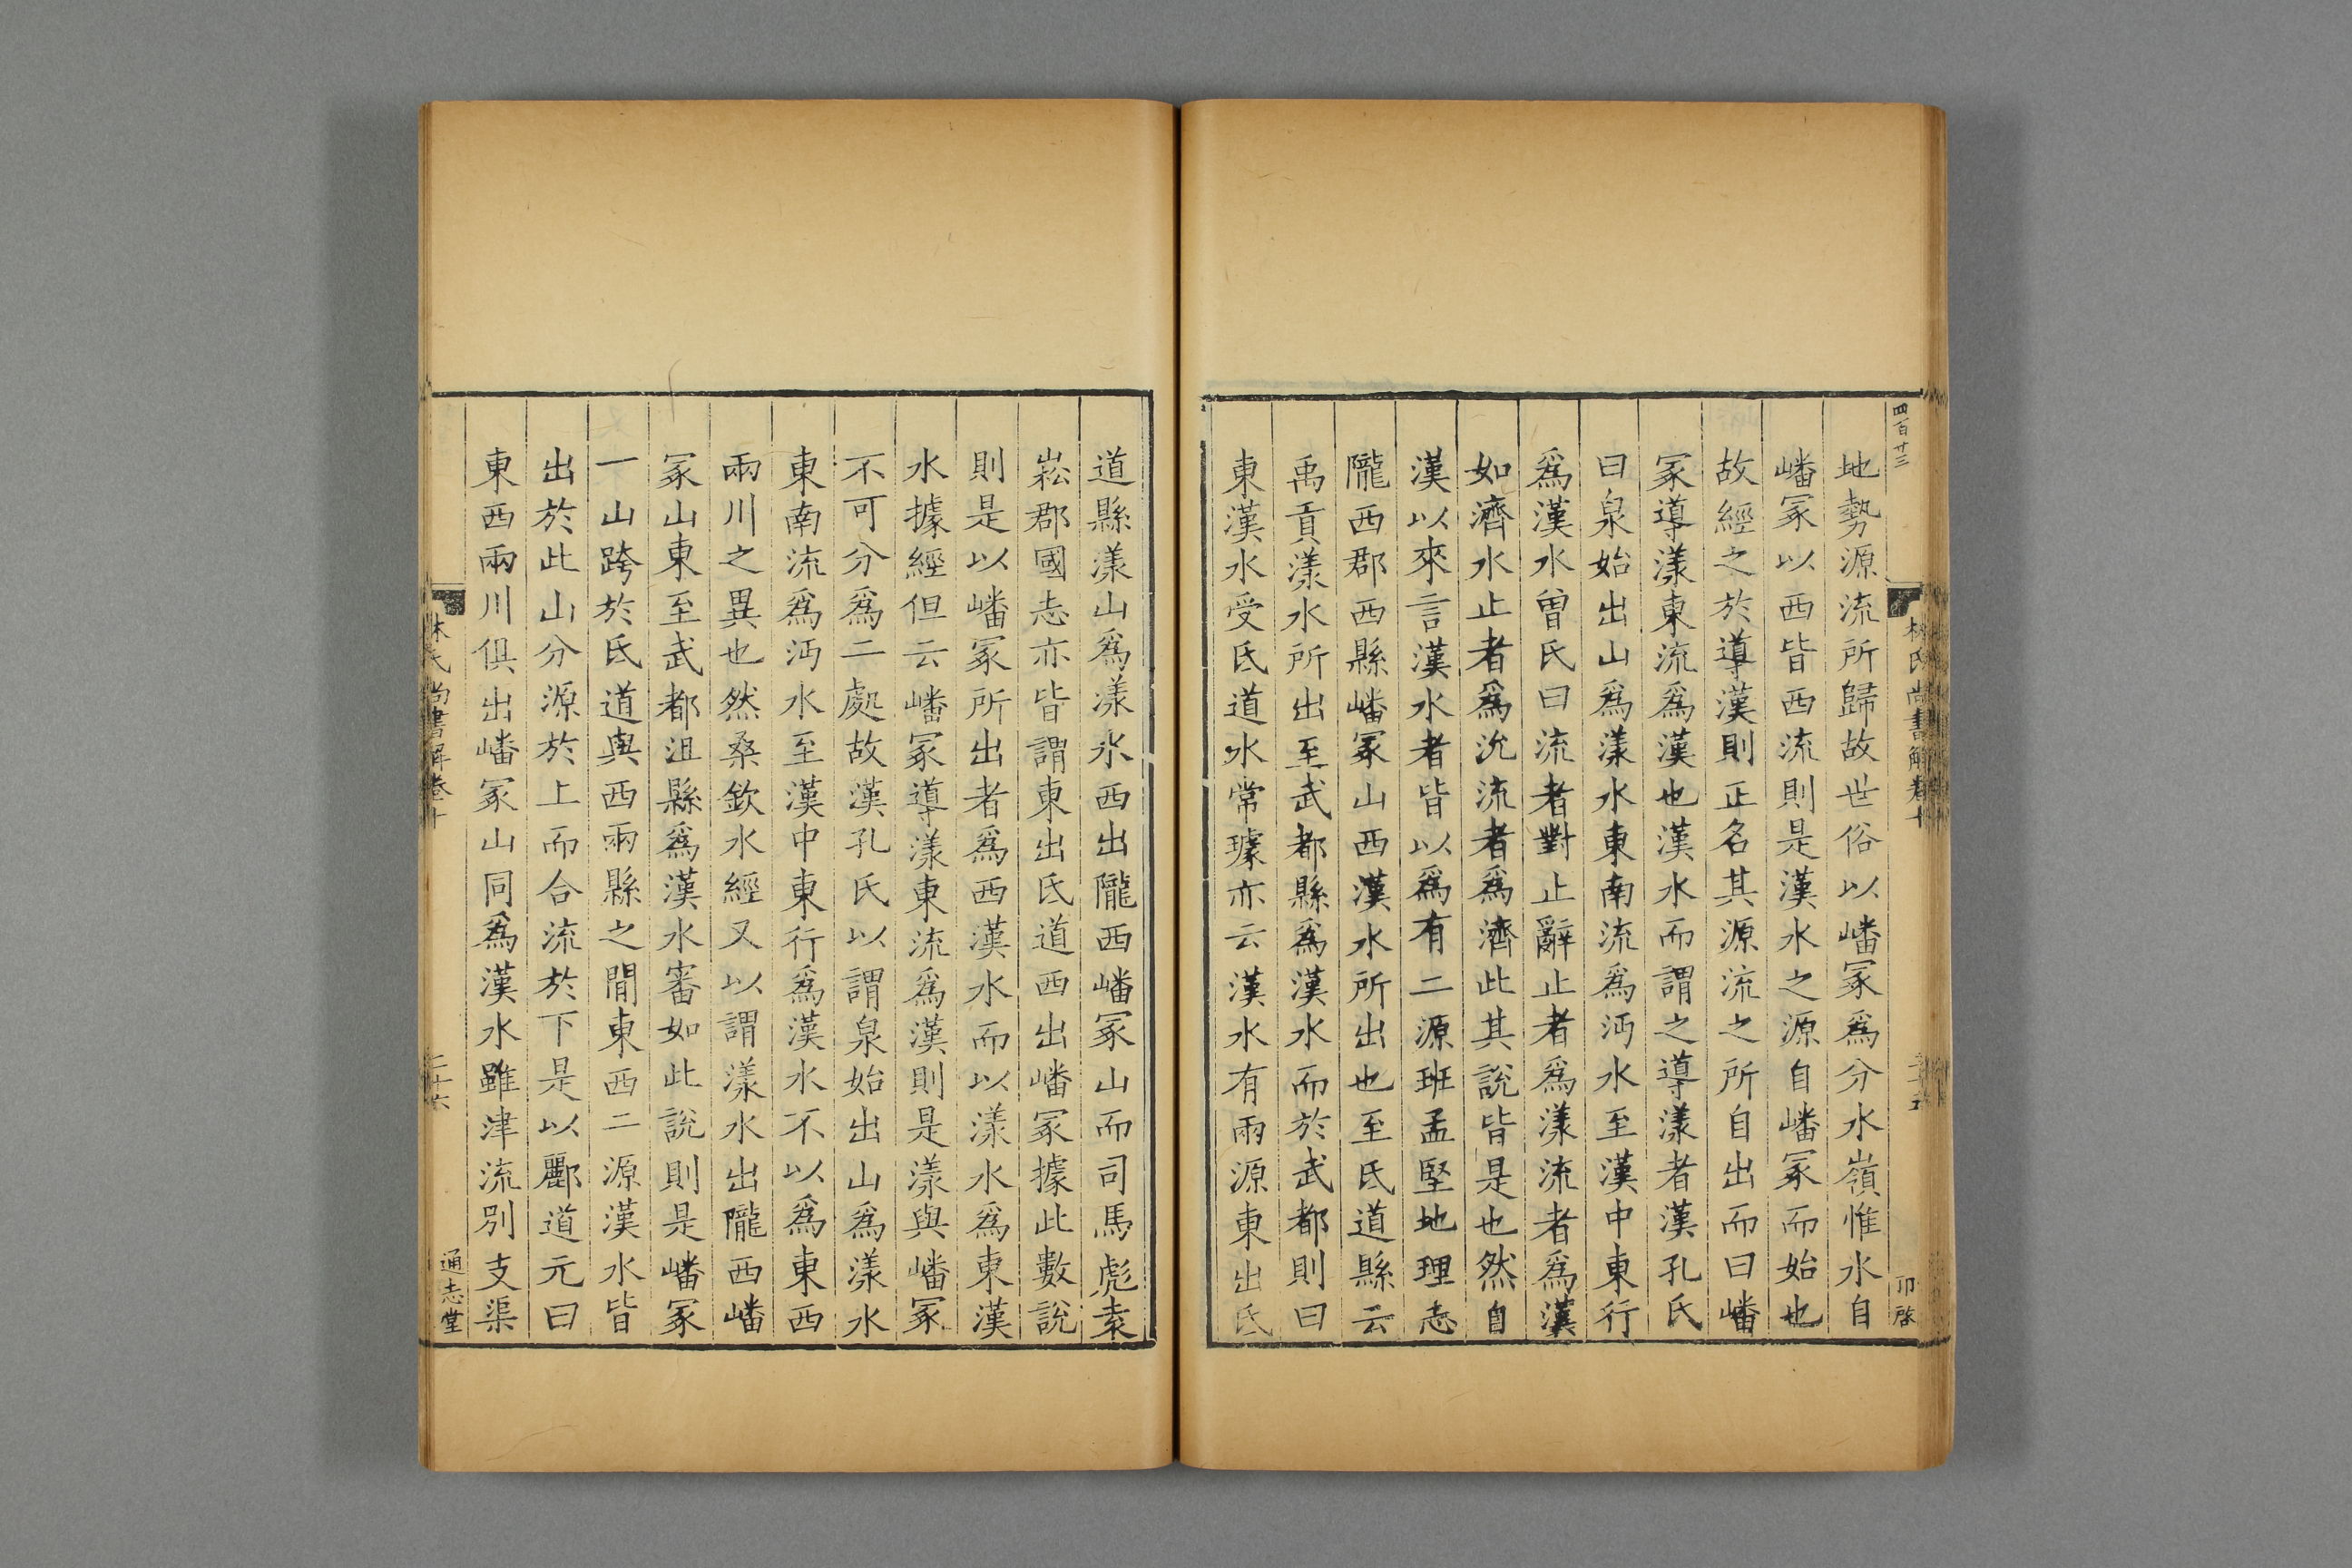 四百廿三
林氏尚書解卷十
二十五
卬啓
地勢源流所歸故世俗以嶓冢爲分水嶺惟水自
嶓冢以西皆西流則是漢水之源自嶓冢而始也
故經之於導漢則正名其源流之所自出而曰嶓
冢導漾東流爲漢也漢水而謂之導漾者漢孔氏
曰泉始出山爲漾水東南流爲沔水至漢中東行
爲漢水曾氏曰流者對止辭止者爲漾流者爲漢
如濟水止者爲沇流者爲濟此其說皆是也然自
漢以來言漢水者皆以爲有二源班孟堅地理志
隴西郡西縣嶓冢山西漢水所出也至氐道縣云
禹貢漾水所出至武都縣爲漢水而於武都則曰
東漢水受氐道水常璩亦云漢水有兩源東出氐
道縣漾山爲漾水西出隴西嶓冢山而司馬彪袁
崧郡國志亦皆謂東出氐道西出嶓冢據此數說
則是以嶓冢所出者爲西漢水而以漾水爲東漢
水據經但云嶓冢導漾東流爲漢則是漾與嶓冢
不可分爲二處故漢孔氏以謂泉始出山爲漾水
東南流爲沔水至漢中東行爲漢水不以爲東西
兩川之異也然桑欽水經又以謂漾水出隴西嶓
冢山東至武都沮縣爲漢水審如此說則是嶓冢
一山跨於氐道與西兩縣之間東西二源漢水皆
出於此山分源於上而合流於下是以酈道元曰
東西兩川俱出嶓冢山同爲漢水雖津流別支渠
林氏尚書解卷十
二十六
通志堂